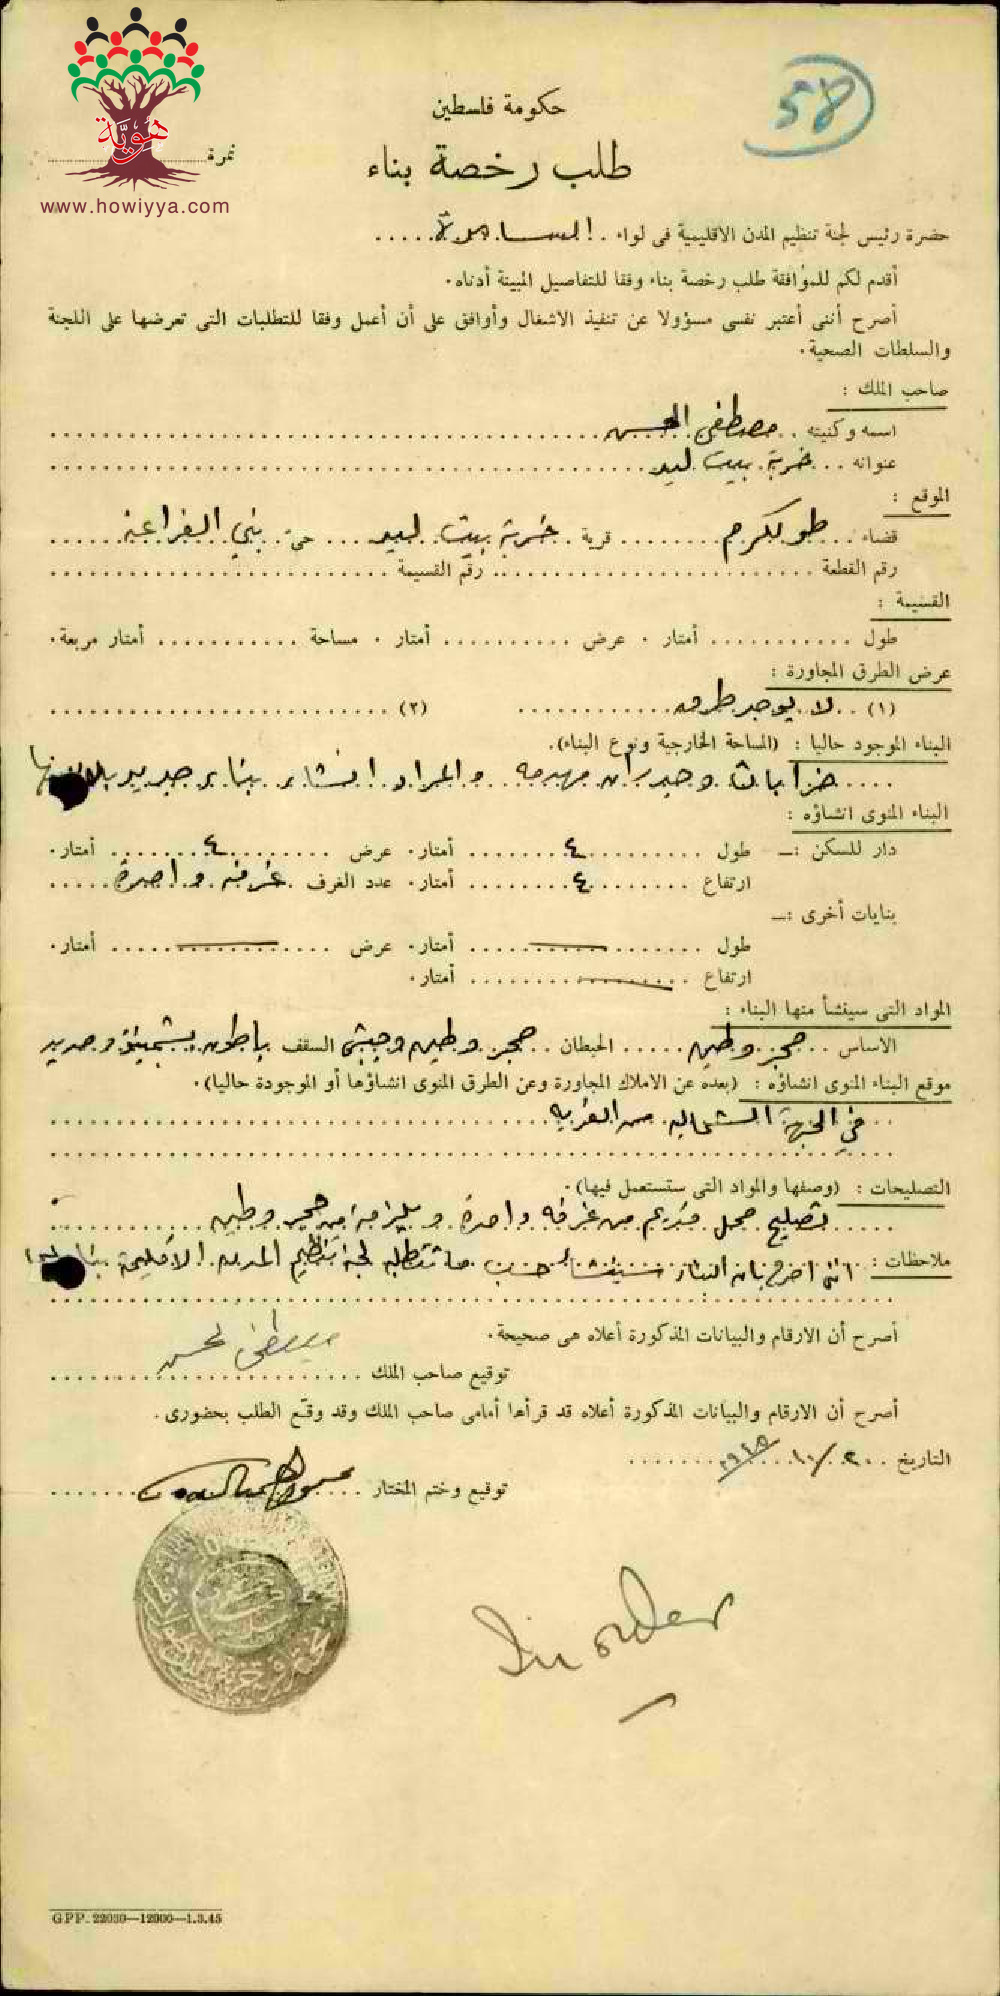 هوية
www.howiyya.com
58
حكومة فلسطين
نمرة
طلب رخصة بناء
حضرة رئيس لجنة تنظيم المدن الاقليمية فى لواء السامرة
أقدم لكم للموافقة طلب رخصة بناء وفقا للتفاصيل المبينة أدناه.
أصرح أننى أعتبر نفسى مسؤولا عن تنفيذ الاشغال وأوافق على أن أعمل وفقا للمتطلبات التى تعرضها على اللجنة
والسلطات الصحية.
صاحب الملك :
اسمه وكنيته مصطفى الحسن
عنوانه خربة بيت ليد
الموقع :
قضاء طولكرم قرية خربة بيت ليد حى بني الفراعنه
رقم القطعة رقم القسيمة
القسيمة :
طول أمتار . عرض أمتار . مساحة أمتار مربعة.
عرض الطرق المجاورة :
(١) لا يوجد طرق (٢)
البناء الموجود حاليا : (المساحة الخارجية ونوع البناء).
خرابات وجدران مهدمه والمراد انشاء بناء جديد
البناء المنوى انشاؤه :
دار للسكن :— طول ٤ أمتار. عرض ٤ أمتار.
ارتفاع ٤ أمتار. عدد الغرف غرفه واحدة
بنايات أخرى :—
طول أمتار. عرض أمتار.
ارتفاع أمتار.
المواد التى سينشأ منها البناء :
الاساس حجر وطين الحيطان حجر وطين السقف باطون بشمينتو وحديد
موقع البناء المنوى انشاؤه : (بعده عن الاملاك المجاورة وعن الطرق المنوى انشاؤها أو الموجودة حاليا).
في الجهة الشماليه من القريه
التصليحات : (وصفها والمواد التى ستستعمل فيها).
تصليح محل قديم من غرفه واحدة حجر وطين
ملاحظات : انني اصرح بان البناء سينشأ حسب ما تتطلبه لجنة تنظيم المدن الاقليمية
أصرح أن الارقام والبيانات المذكورة أعلاه هى صحيحة.
مصطفى الحسن
توقيع صاحب الملك
أصرح أن الارقام والبيانات المذكورة أعلاه قد قرأها أمامى صاحب الملك وقد وقع الطلب بحضورى.
التاريخ ٢٠/١٠/٩٤٥
توقيع وختم المختار
In order
G.P.P. 22030—12000—1.3.45